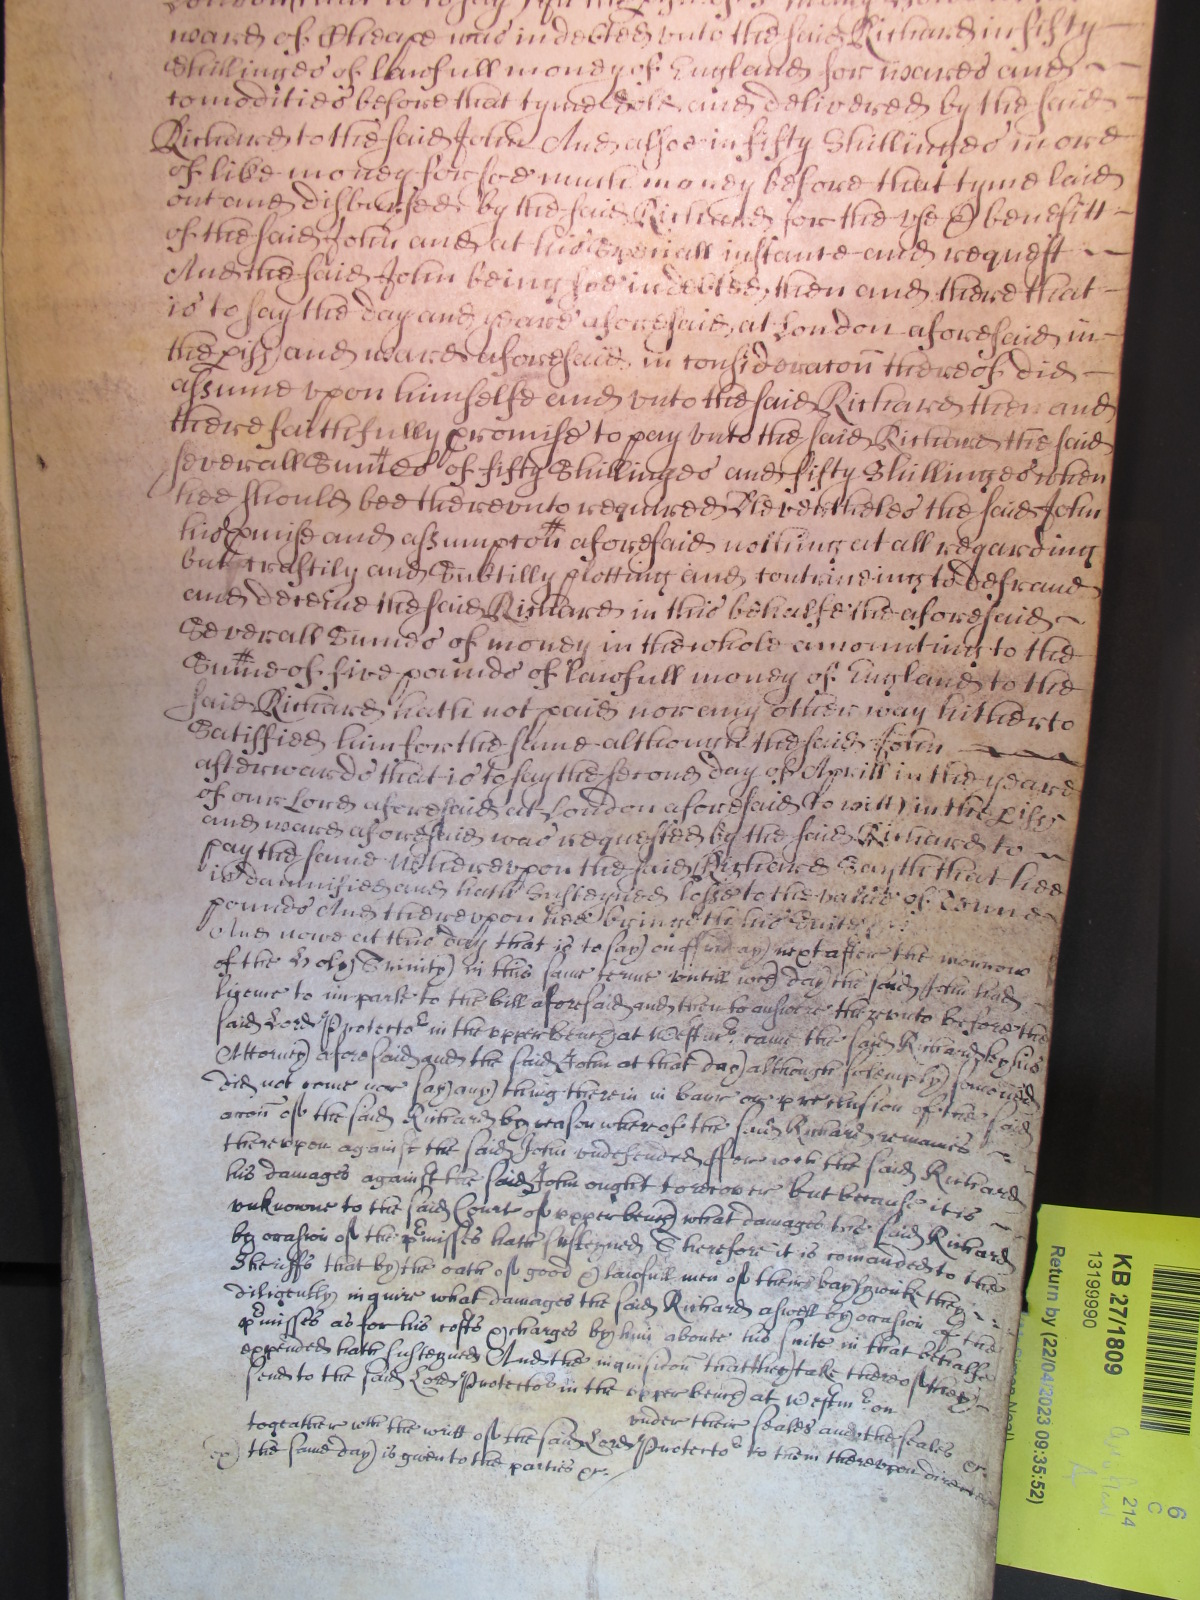 ward of Cheape was indebted unto the said Richard in fifty
Shillinges of lawfull money of England for wares and
comodities before that tyme sold and delivered by the said
Richard to the said John And alsoe in fifty Shillinges more
of like money for soe much money before that tyme laid
out and disbursed by the said Richard for the use & benefitt
of the said John and at his speciall instance and request
And the said John being soe indebted then and there that
is to say the day and yeare aforesaid at London aforesaid in
the pish and ward aforesaid in consideracon thereof did
assume vpon himselfe and vnto the said Richard then and
there faithfully promise to pay vnto the said Richard the said
severall Sumes of fifty Shillinges and fifty Shillinges when
hee should bee therevnto required Neverthelес the said John
his pmise and assumpcon aforesaid nothing at all regarding
but craftily and Subtilly plotting and contriveing to defraud
and deceive the said Richard in this behalfe the aforesaid
Severall Sumes of money in the whole amounting to the
Sume of five pounds of lawfull money of England to the
said Richard hath not paid nor any other way hitherto
Satisfied him for the same although the said John
afterwards that is to say the second day of Aprill in the yeare
of our Lord aforesaid at London aforesaid (to witt) in the pish
and ward aforesaid was requested by the said Richard to
pay the same Wherevpon the said Richard Sayth that hee
is damnified and hath Susteyned losse to the value of Tenne
pounds And therevpon hee bringeth his Suite &c
And nowe at this day that is to say on friday next after the morrow
of the Holy Trinity in this same terme vntill wch day the said John had
licence to imparle to the bill aforesaid and then to answere therevnto before the
said Lord Protector in the vpper bench at Westmr came the said Richard by his
Attorney aforesaid and the said John at that day although solemply somoned
did not come nor say any thing therein in barr or preclusion of the said
accon of the said Richard by reason whereof the said Richard remaines
therevpon against the said John vndefended ffor wch the said Richard
his damages against the said John ought to recover but because it is
vnknowne to the said Court of vpper bench what damages the said Richard
by occasion of the pmisses hath susteyned Therefore it is comanded to the
Sheriffs that by the oath of good & lawfull men of theire baylywicke they
diligently inquire what damages the said Richard aswell by occasion of the
pmisses as for his costs & charges by him aboute his suite in that behalfe
expended hath susteyned And the inquisicon that they take thereof they
send to the said Lord Protector in the vpper bench at Westmr on
vnder their seales and the seales &c
togeather wth the writt of the said Lord Protector to them therevpon directed
the same day is given to the parties &c
KB 27/1809
13199990
Return by (22/04/2023 09:35:52)
6
C
214